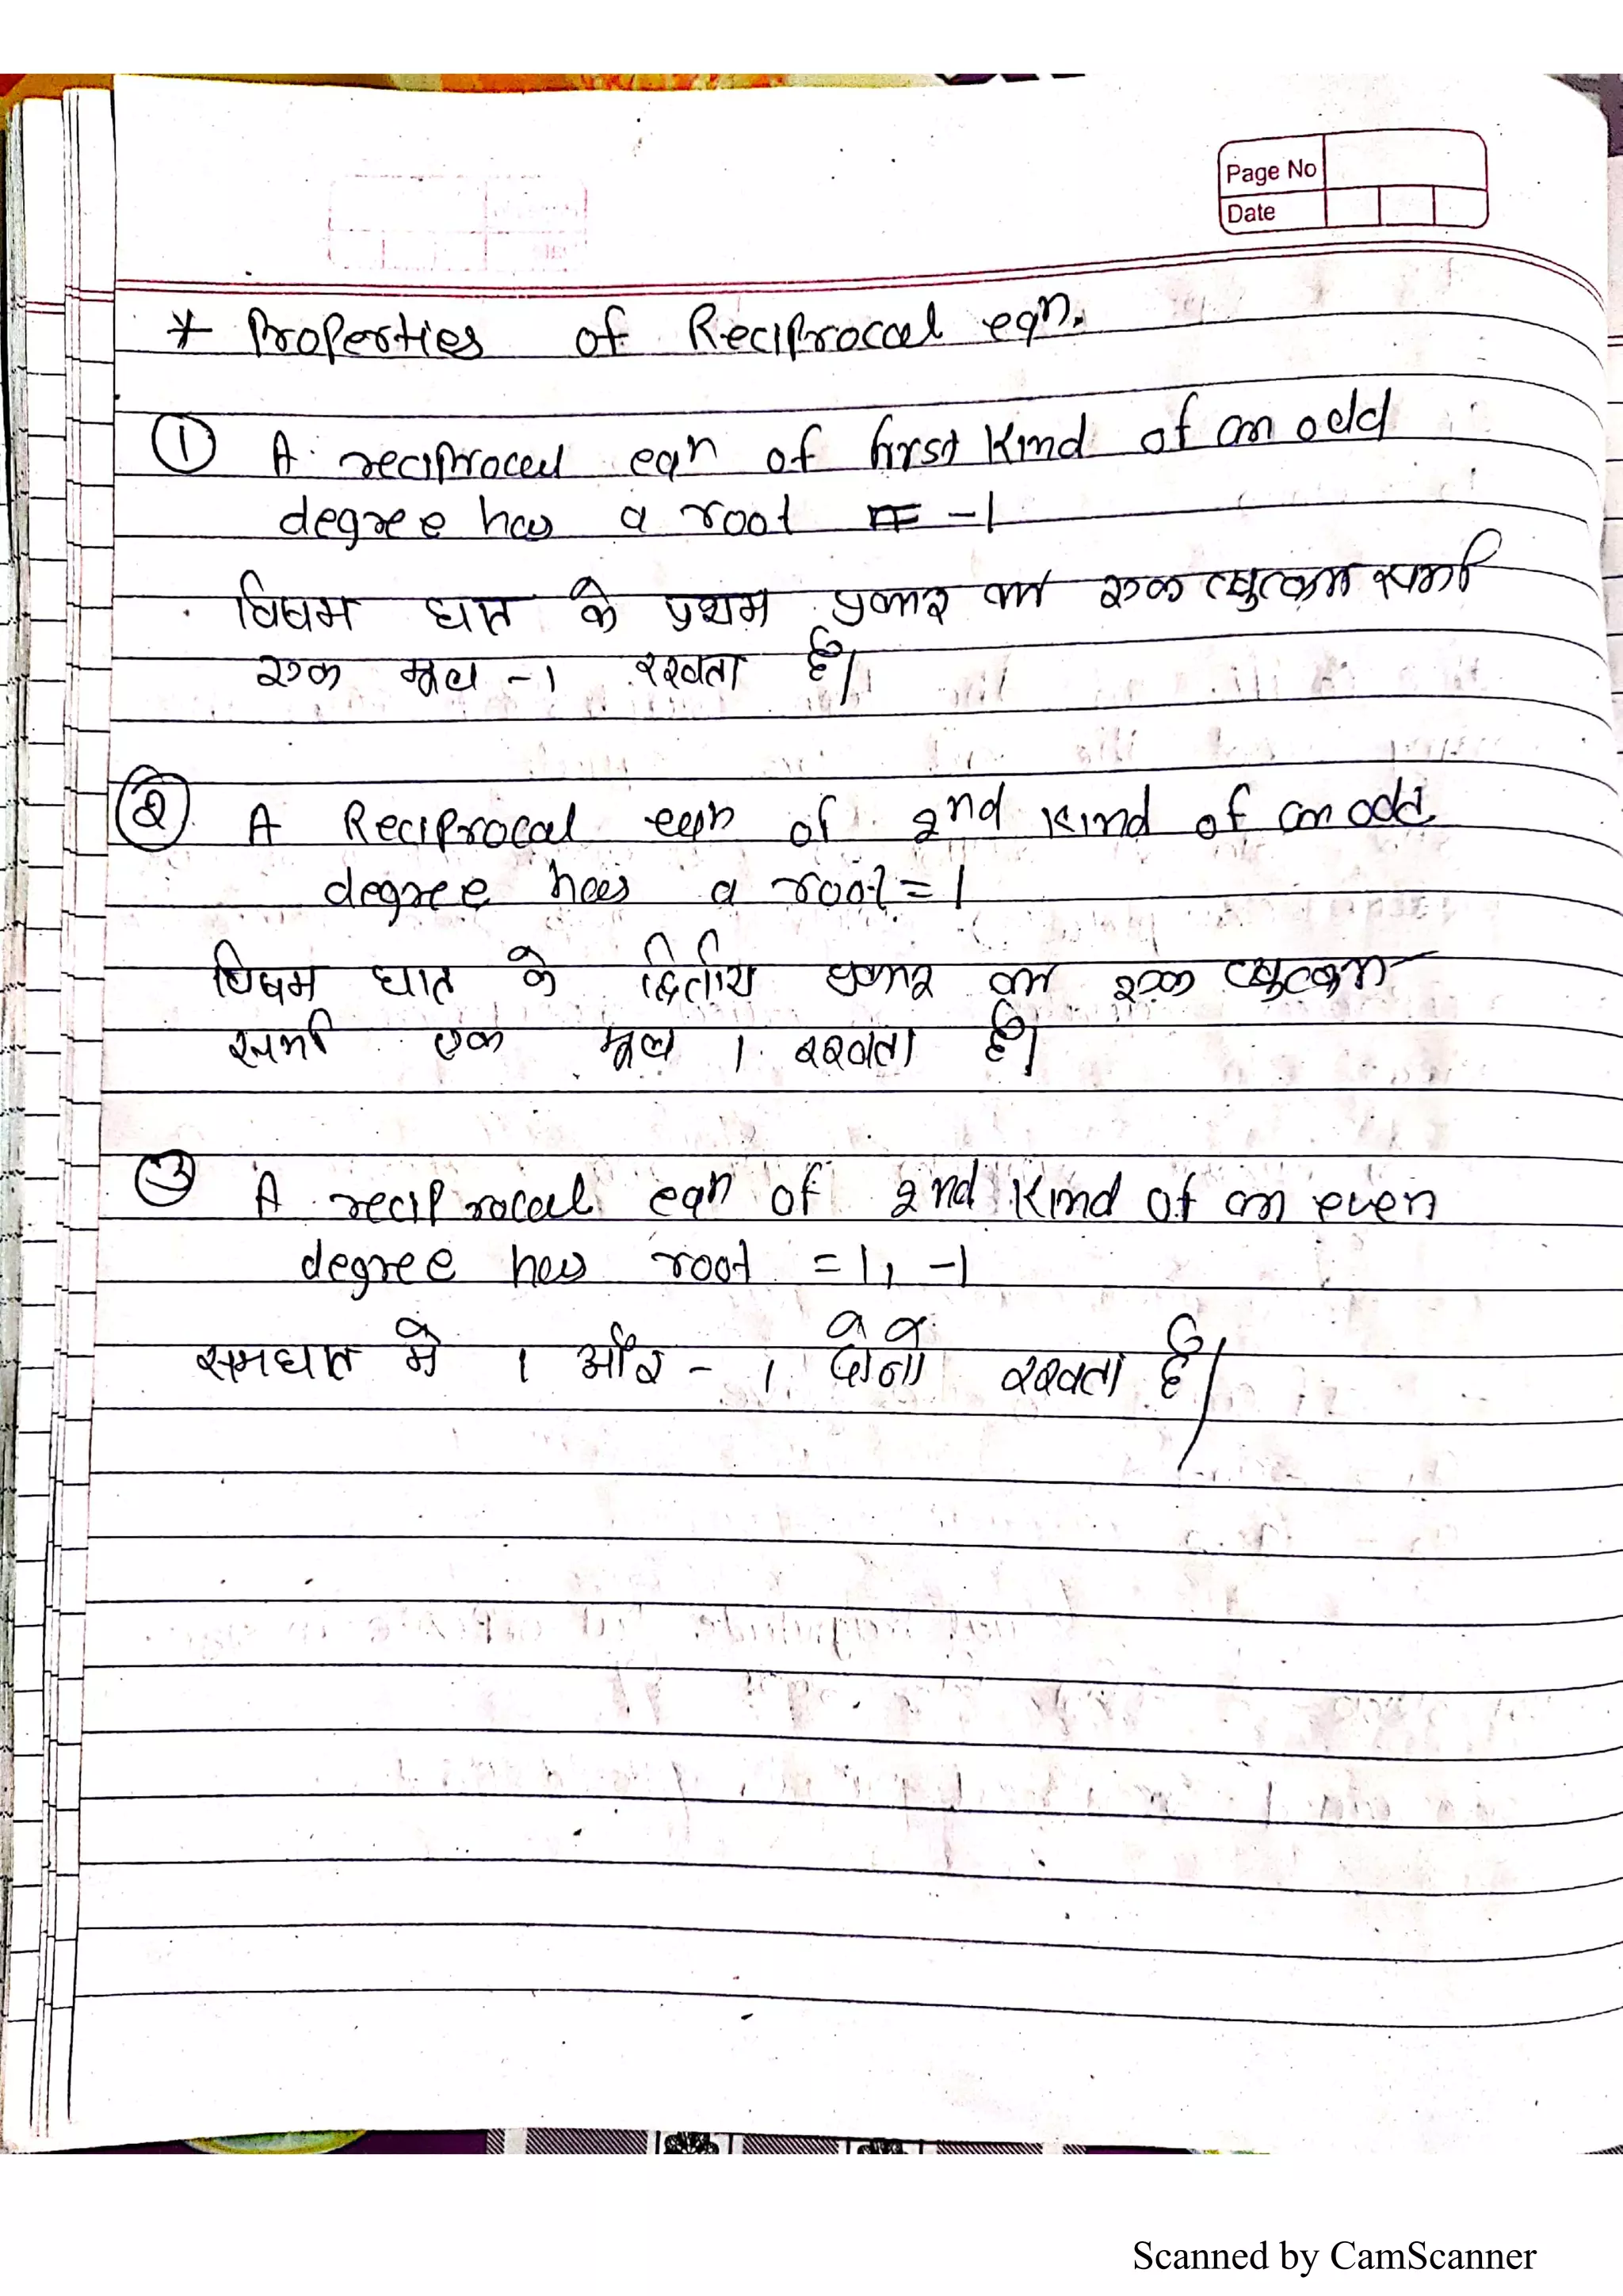 Page No
Date
* Properties of Reciprocal eqn.
① A reciprocal eqn of first kind of an odd
degree has a root = -1
विषम घात के प्रथम प्रकार का एक व्युत्क्रम समी
एक मूल -1 रखता है।
② A Reciprocal eqn of 2nd kind of an odd
degree has a root = 1
विषम घात के द्वितीय प्रकार का एक व्युत्क्रम
समी एक मूल 1 रखता है।
③ A reciprocal eqn of 2nd kind of an even
degree has root = 1, -1
समघात में 1 और -1 दोनों रखता है।
Scanned by CamScanner